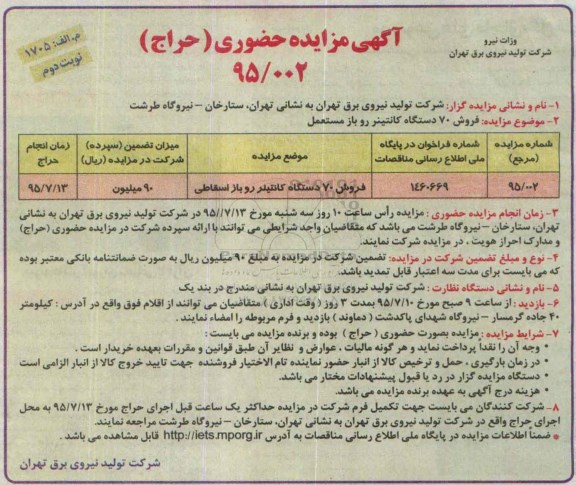 م.الف: ۱۷۰۵
نوبت دوم
آگهی مزایده حضوری (حراج)
۹۵/۰۰۲
وزات نیرو
شرکت تولید نیروی برق تهران
۱- نام و نشانی مزایده گزار: شرکت تولید نیروی برق تهران به نشانی تهران، ستارخان – نیروگاه طرشت
۲- موضوع مزایده: فروش ۷۰ دستگاه کانتینر رو باز مستعمل
شماره مزایده (مرجع) شماره فراخوان در پایگاه ملی اطلاع رسانی مناقصات موضع مزایده میزان تضمین (سپرده) شرکت در مزایده (ریال) زمان انجام حراج
۹۵/۰۰۲ ۱٤۶۰۶۶۹ فروش ۷۰ دستگاه کانتینر رو باز اسقاطی ۹۰ میلیون ۹۵/۷/۱۳
۳- زمان انجام مزایده حضوری : مزایده رأس ساعت ۱۰ روز سه شنبه مورخ ۹۵/۷/۱۳// در شرکت تولید نیروی برق تهران به نشانی
تهران، ستارخان – نیروگاه طرشت می باشد که متقاضیان واجد شرایطی می توانند با ارائه سپرده شرکت در مزایده حضوری (حراج)
و مدارک احراز هویت ، در مزایده شرکت نمایند.
۴- نوع و مبلغ تضمین شرکت در مزایده: تضمین شرکت در مزایده به مبلغ ۹۰ میلیون ریال به صورت ضمانتنامه بانکی معتبر بوده
که می بایست برای مدت سه اعتبار قابل تمدید باشد.
۵- نام و نشانی دستگاه نظارت : شرکت تولید نیروی برق تهران به نشانی مندرج در بند یک
۶- بازدید : از ساعت ۹ صبح مورخ ۹۵/۷/۱۰ بمدت ۳ روز ( وقت اداری ) متقاضیان می توانند از اقلام فوق واقع در آدرس : کیلومتر
۴۰ جاده گرمسار – نیروگاه شهدای پاکدشت ( دماوند ) بازدید و فرم مربوطه را امضاء نمایند .
۷- شرایط مزایده : مزایده بصورت حضوری ( حراج ) بوده و برنده مزایده می بایست :
• وجه آن را نقداً پرداخت نماید و هر گونه مالیات ، عوارض و نظایر آن طبق قوانین و مقررات بعهده خریدار است .
• در زمان بارگیری ، حمل و ترخیص کالا از انبار حضور نماینده تام الاختیار فروشنده جهت تایید خروج کالا از انبار الزامی است
• دستگاه مزایده گزار در رد یا قبول پیشنهادات مختار می باشد.
• هزینه درج آگهی به عهده برنده مزایده می باشد.
۸- شرکت کنندگان می بایست جهت تکمیل فرم شرکت در مزایده حداکثر یک ساعت قبل اجرای حراج مورخ ۹۵/۷/۱۳ به محل
اجرای حراج واقع در شرکت تولید نیروی برق تهران به نشانی تهران، ستارخان – نیروگاه طرشت مراجعه نمایند.
• ضمناً اطلاعات مزایده در پایگاه ملی اطلاع رسانی مناقصات به آدرس http://iets.mporg.ir قابل مشاهده می باشد .
شرکت تولید نیروی برق تهران